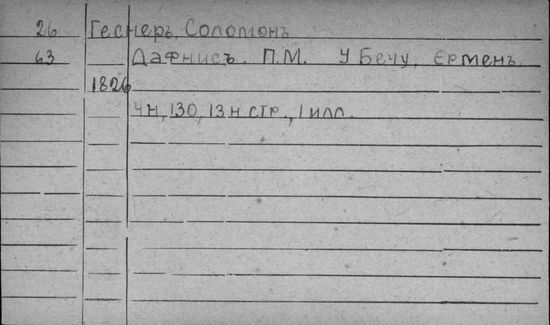 26 Геснеръ, Соломонъ
63 Дафнисъ. П.М. У Бечу, Ермен.
1826
4н, 130, 13н стр., 1 илл.